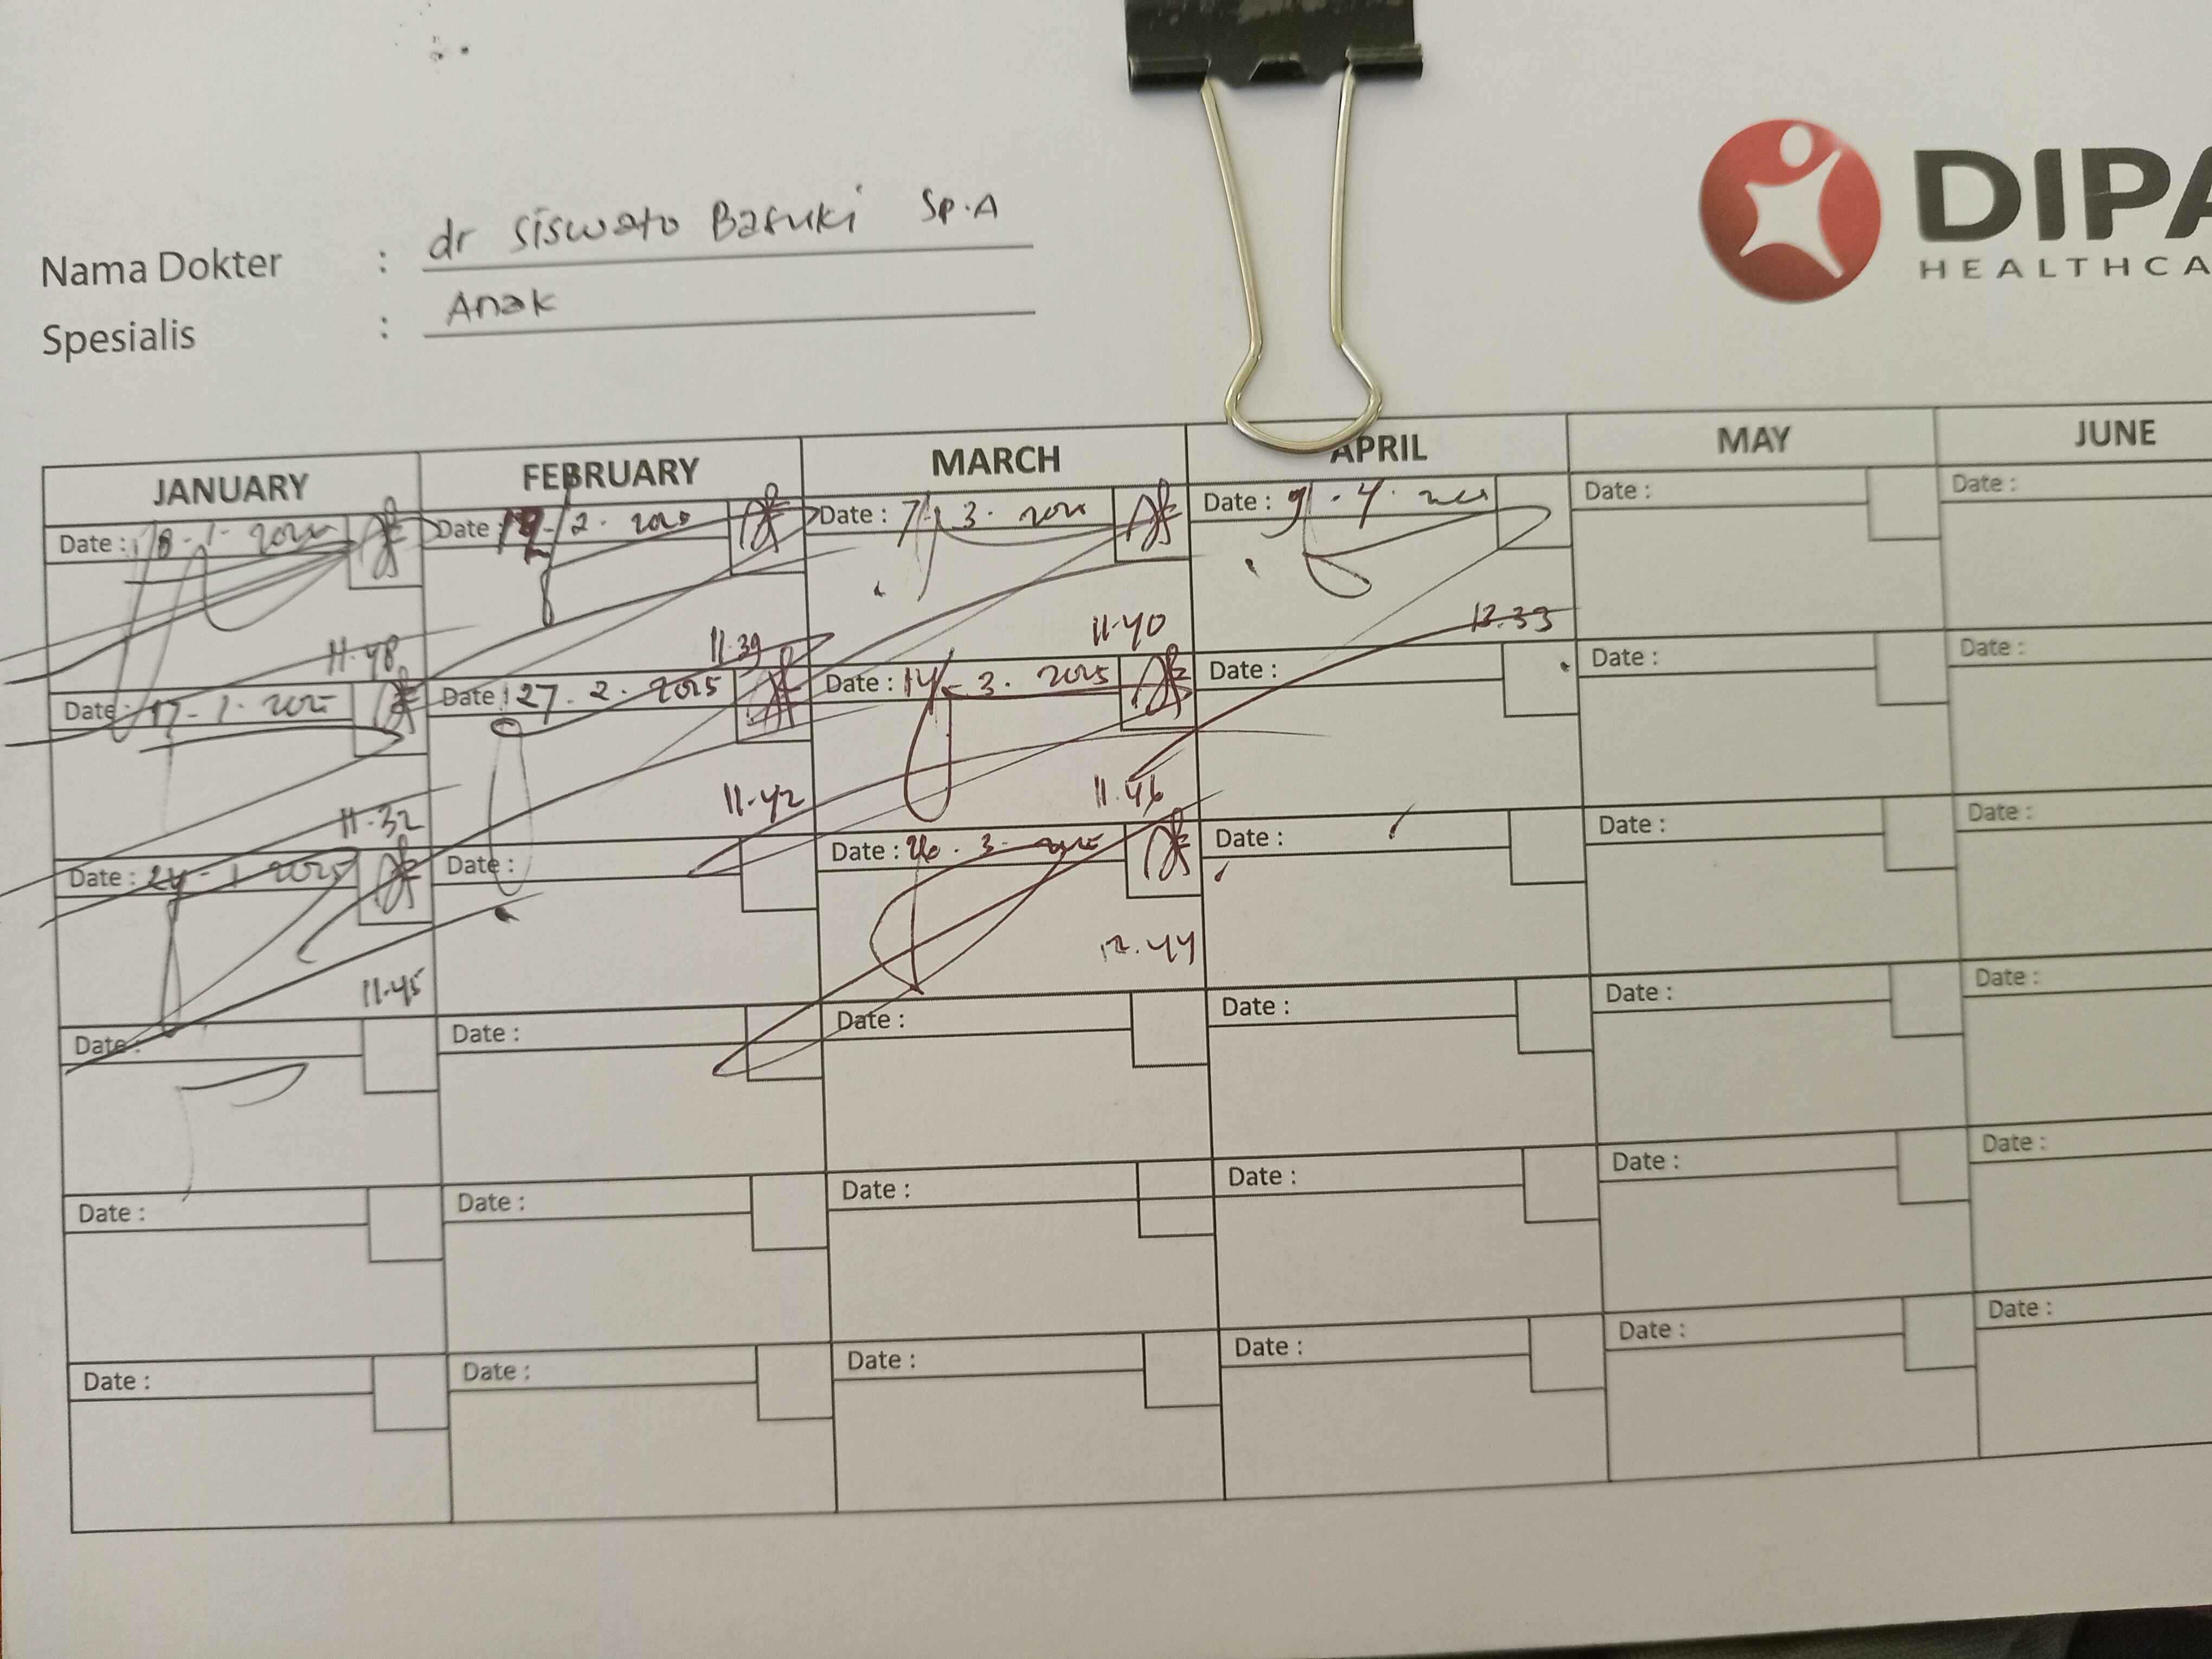 DIPA
HEALTHCA
Nama Dokter : dr Siswato Basuki Sp.A
Spesialis : Anak
JANUARY FEBRUARY MARCH APRIL MAY JUNE
Date : 8-1-2025 Date : 2.2025 Date : 7-3.2025 Date : 9.4. Date : Date :
11.48 11.39 11.40 13.33
Date : 17-1.2025 Date : 27.2.2025 Date : 14-3.2025 Date : Date : Date :
11.32 11.42 11.46
Date : 24-1-2025 Date : Date : 26.3.2025 Date : Date : Date :
11.45 12.44
Date : Date : Date : Date : Date : Date :
Date : Date : Date : Date : Date : Date :
Date : Date : Date : Date : Date : Date :